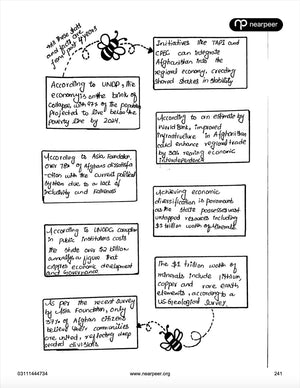 nearpeer
All these stats
and facts are
from past 4 years
According to UNDP, the
economy is on the brink of
collapse with 97% of the population
projected to live below the
poverty line by 2024.
Initiatives like TAPI and
CPEC can integrate
Afghanistan into the
regional economy, creating
shared stakes in stability
According to Asia Foundation,
over 78% of Afghans dissatisfa
-ction with the current political
system due to a lack of
inclusivity and fairness
According to an estimate by
World Bank, improved
infrastructure in Afghanistan
could enhance regional trade
by 30% raising economic
interdependence
According to UNODC corruption
in public institutions costs
the state over $2 billion
annually a figure that
cripples economic development
and governance
Achieving economic
diversification is paramount
as the state possesses vast
untapped resources including
$1 trillion worth of minerals
As per the recent survey
by Asia Foundation, only
37% of Afghan citizens
believe their communities
are united, reflecting deep
rooted divisions
The $1 trillion worth of
minerals include lithium,
copper and rare earth
elements, according to a
US Geological Survey.
03111444734
www.nearpeer.org
241